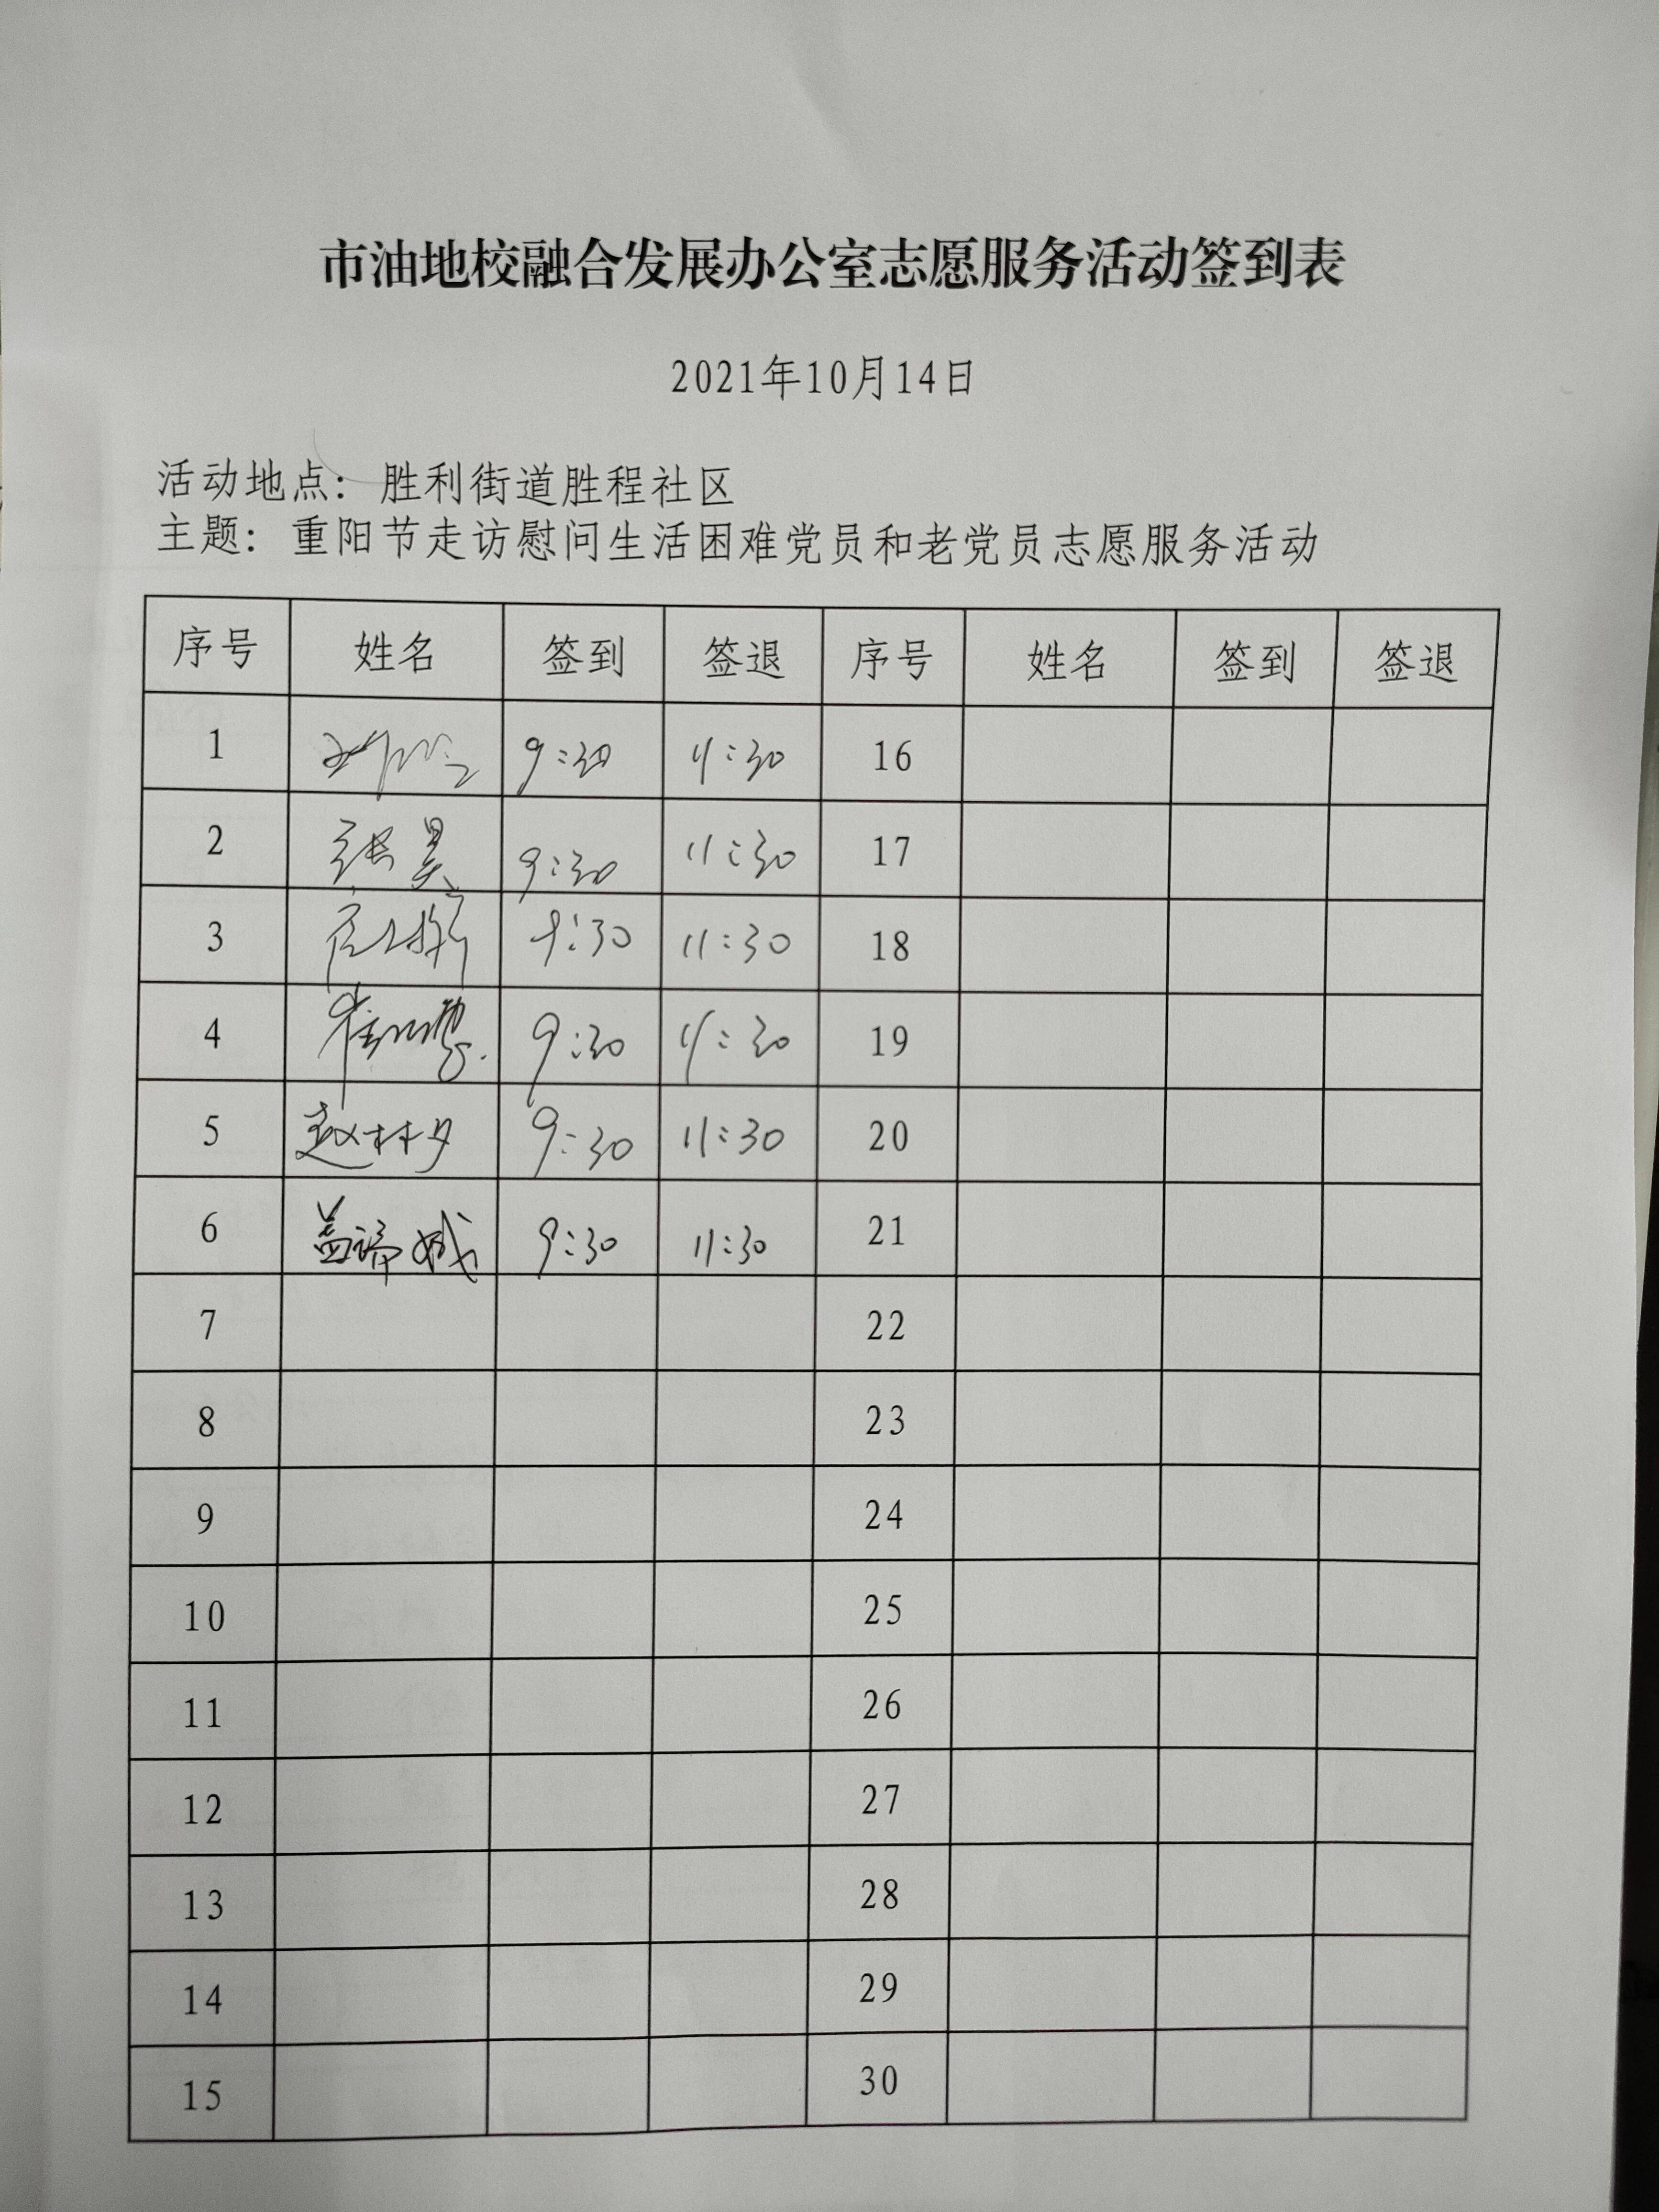 市油地校融合发展办公室志愿服务活动签到表
2021年10月14日
活动地点：胜利街道胜程社区
主题：重阳节走访慰问生活困难党员和老党员志愿服务活动
序号 姓名 签到 签退 序号 姓名 签到 签退
1 9:30 11:30 16
2 张昊 9:30 11:30 17
3 9:30 11:30 18
4 9:30 11:30 19
5 赵林夕 9:30 11:30 20
6 9:30 11:30 21
7 22
8 23
9 24
10 25
11 26
12 27
13 28
14 29
15 30